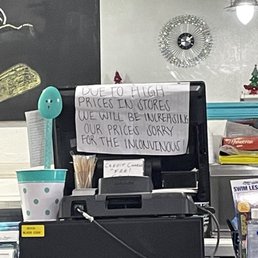 DUE TO HIGH
PRICES IN STORES
WE WILL BE INCREASING
OUR PRICES SORRY
FOR THE INCONVINOUS
CREDIT CARD
FEE!
SWIM LES